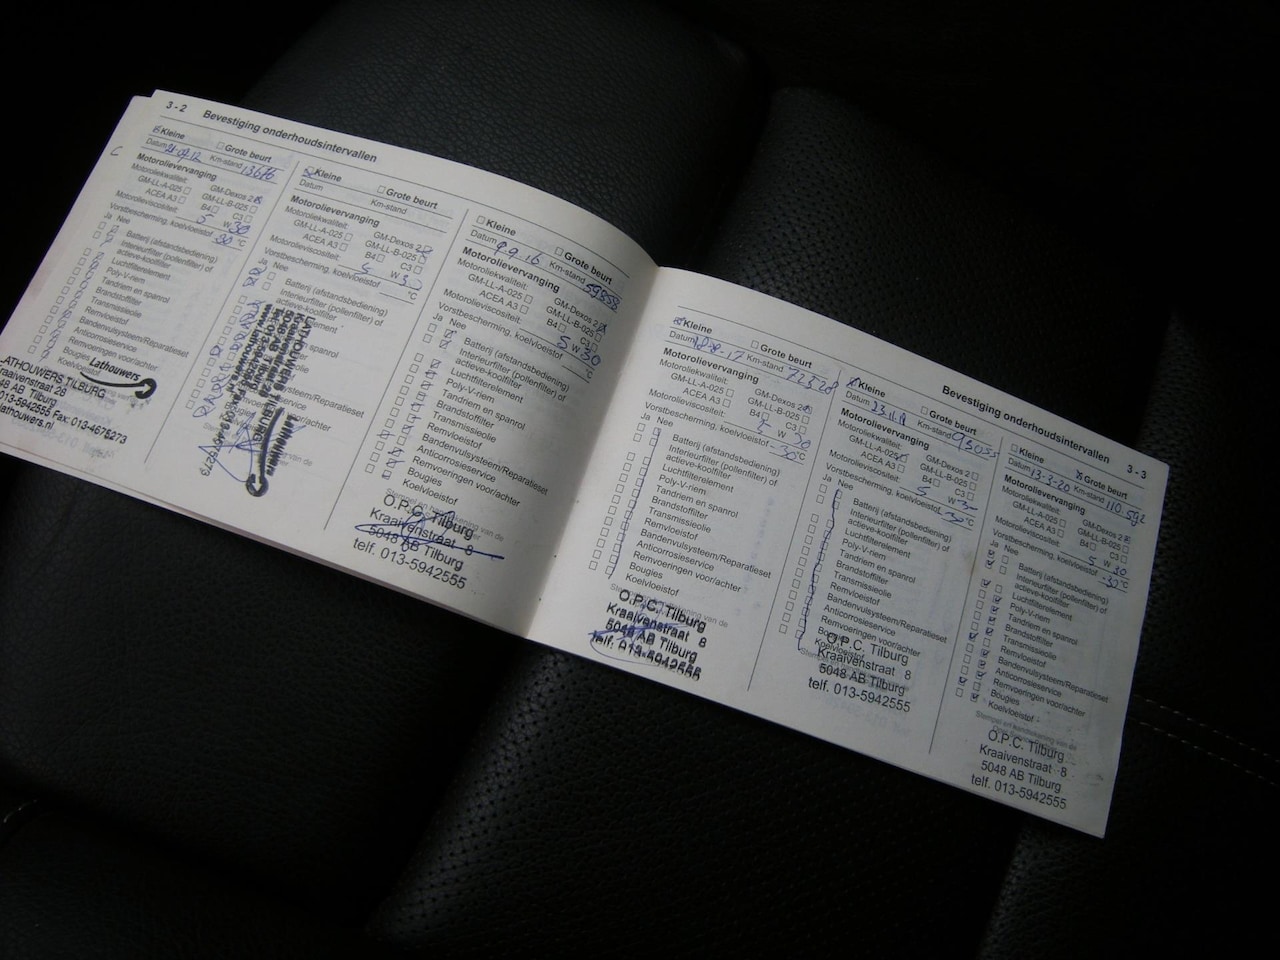 3 - 2 Bevestiging onderhoudsintervallen
Kleine Grote beurt
Datum Km-stand 13676
Motorolievervanging
Motoroliekwaliteit: GM-Dexos 2
GM-LL-A-025 GM-LL-B-025
ACEA A3 B4 C3
Motorolieviscositeit: 5 W 30
Vorstbescherming, koelvloeistof -30 °C
Ja Nee
Batterij (afstandsbediening)
Interieurfilter (pollenfilter) of
actieve-koolfilter
Luchtfilterelement
Poly-V-riem
Tandriem en spanrol
Brandstoffilter
Transmissieolie
Remvloeistof
Bandenvulsysteem/Reparatieset
Anticorrosieservice
Remvoeringen voor/achter
Bougies
Koelvloeistof
Lathouwers
LATHOUWERS TILBURG
Kraaivenstraat 28
5048 AB Tilburg
013-5942555 Fax: 013-4676273
lathouwers.nl
Kleine Grote beurt
Datum Km-stand
Motorolievervanging
Motoroliekwaliteit: GM-Dexos 2
GM-LL-A-025 GM-LL-B-025
ACEA A3 B4 C3
Motorolieviscositeit: 5 W 30
Vorstbescherming, koelvloeistof °C
Ja Nee
Batterij (afstandsbediening)
Interieurfilter (pollenfilter) of
actieve-koolfilter
LATHOUWERS TILBURG
Lathouwers
Kleine Grote beurt
Datum 9.9.16 Km-stand 59555
Motorolievervanging
Motoroliekwaliteit: GM-Dexos 2
GM-LL-A-025 GM-LL-B-025
ACEA A3 B4 C3
Motorolieviscositeit: 5 W 30
Vorstbescherming, koelvloeistof °C
Ja Nee
Batterij (afstandsbediening)
Interieurfilter (pollenfilter) of
actieve-koolfilter
Luchtfilterelement
Poly-V-riem
Tandriem en spanrol
Brandstoffilter
Transmissieolie
Remvloeistof
Bandenvulsysteem/Reparatieset
Anticorrosieservice
Remvoeringen voor/achter
Bougies
Koelvloeistof
O.P.C. Tilburg
Kraaivenstraat 8
5048 AB Tilburg
telf. 013-5942555
Kleine Grote beurt
Datum 18-8-17 Km-stand 72328
Motorolievervanging
Motoroliekwaliteit: GM-Dexos 2
GM-LL-A-025 GM-LL-B-025
ACEA A3 B4 C3
Motorolieviscositeit: 5 W 30
Vorstbescherming, koelvloeistof -30 °C
Ja Nee
Batterij (afstandsbediening)
Interieurfilter (pollenfilter) of
actieve-koolfilter
Luchtfilterelement
Poly-V-riem
Tandriem en spanrol
Brandstoffilter
Transmissieolie
Remvloeistof
Bandenvulsysteem/Reparatieset
Anticorrosieservice
Remvoeringen voor/achter
Bougies
Koelvloeistof
O.P.C. Tilburg
Kraaivenstraat 8
5048 AB Tilburg
telf. 013-5942555
Bevestiging onderhoudsintervallen 3 - 3
Kleine Grote beurt
Datum Km-stand 93055
Motorolievervanging
Motoroliekwaliteit: GM-Dexos 2
GM-LL-A-025 GM-LL-B-025
ACEA A3 B4 C3
Motorolieviscositeit: 5 W 30
Vorstbescherming, koelvloeistof °C
Ja Nee
Batterij (afstandsbediening)
Interieurfilter (pollenfilter) of
actieve-koolfilter
Luchtfilterelement
Poly-V-riem
Tandriem en spanrol
Brandstoffilter
Transmissieolie
Remvloeistof
Bandenvulsysteem/Reparatieset
Anticorrosieservice
Remvoeringen voor/achter
Bougies
Koelvloeistof
O.P.C. Tilburg
Kraaivenstraat 8
5048 AB Tilburg
telf. 013-5942555
Kleine Grote beurt
Datum 13-3-20 Km-stand 110.592
Motorolievervanging
Motoroliekwaliteit: GM-Dexos 2
GM-LL-A-025 GM-LL-B-025
ACEA A3 B4 C3
Motorolieviscositeit: 5 W 30
Vorstbescherming, koelvloeistof -30 °C
Ja Nee
Batterij (afstandsbediening)
Interieurfilter (pollenfilter) of
actieve-koolfilter
Luchtfilterelement
Poly-V-riem
Tandriem en spanrol
Brandstoffilter
Transmissieolie
Remvloeistof
Bandenvulsysteem/Reparatieset
Anticorrosieservice
Remvoeringen voor/achter
Bougies
Koelvloeistof
Stempel en handtekening van de
O.P.C. Tilburg
Kraaivenstraat 8
5048 AB Tilburg
telf. 013-5942555